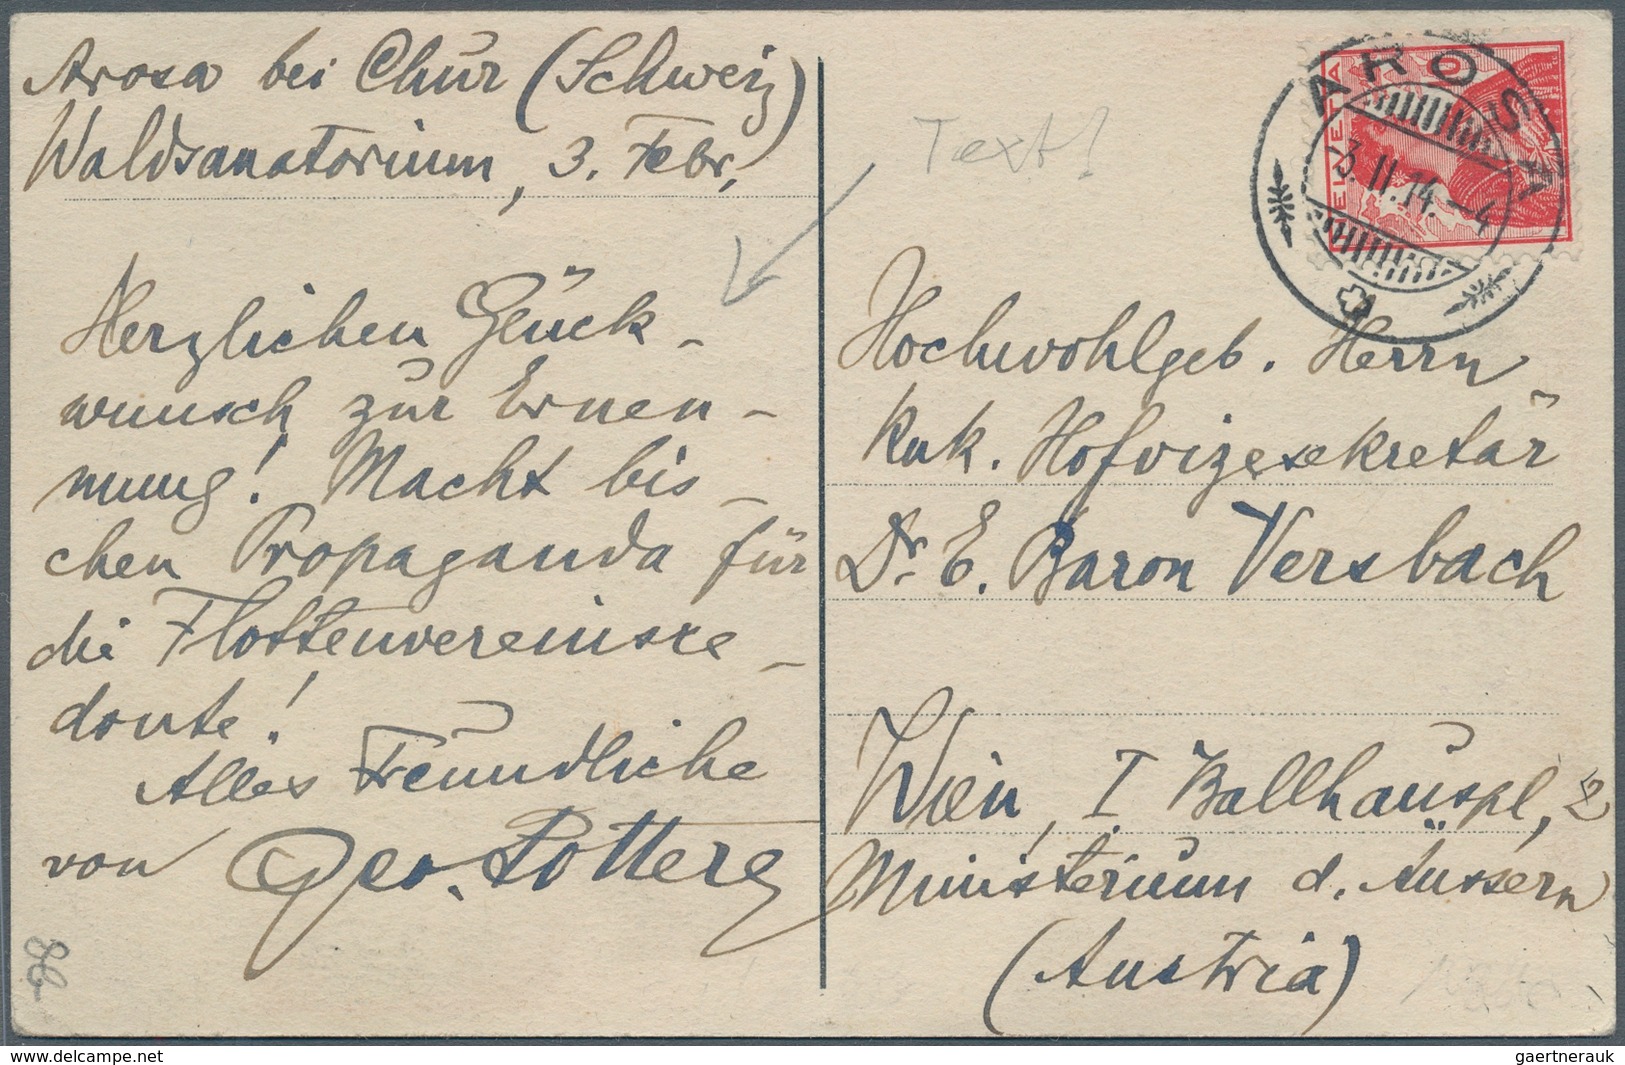 Arosa bei Chur (Schweiz)
Waldsanatorium, 3. Febr.,
Herzlichen Glück-
wunsch zur Ernen-
nung! Macht bis-
chen Propaganda für
die Flottenvereinsre-
doute!
Alles Freundliche
von Geo. Pottere
Text!
HELVETIA
AROSA
-3.II.14.-4
Hochwohlgeb. Herrn
KuK. Hofvizesekretär
Dr. E. Baron Versbach
Wien, I Ballhauspl, 2
Ministerium d. Äussern
(Austria)
delcampe.net
gaertnerauk